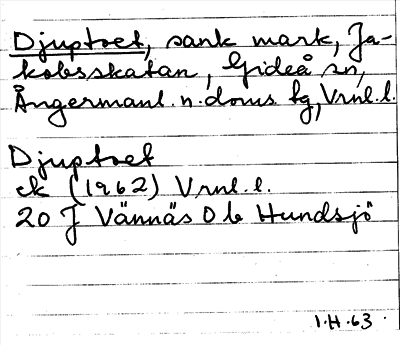 Djuptoet, sank mark, Ja-
kobsskatan, Gideå sn,
Ångermanl. n. doms. tg, Vrnl. l.
Djuptoet
ek (1962) Vrnl. l.
20 J Vännäs 0 b Hundsjö
1.H.63.